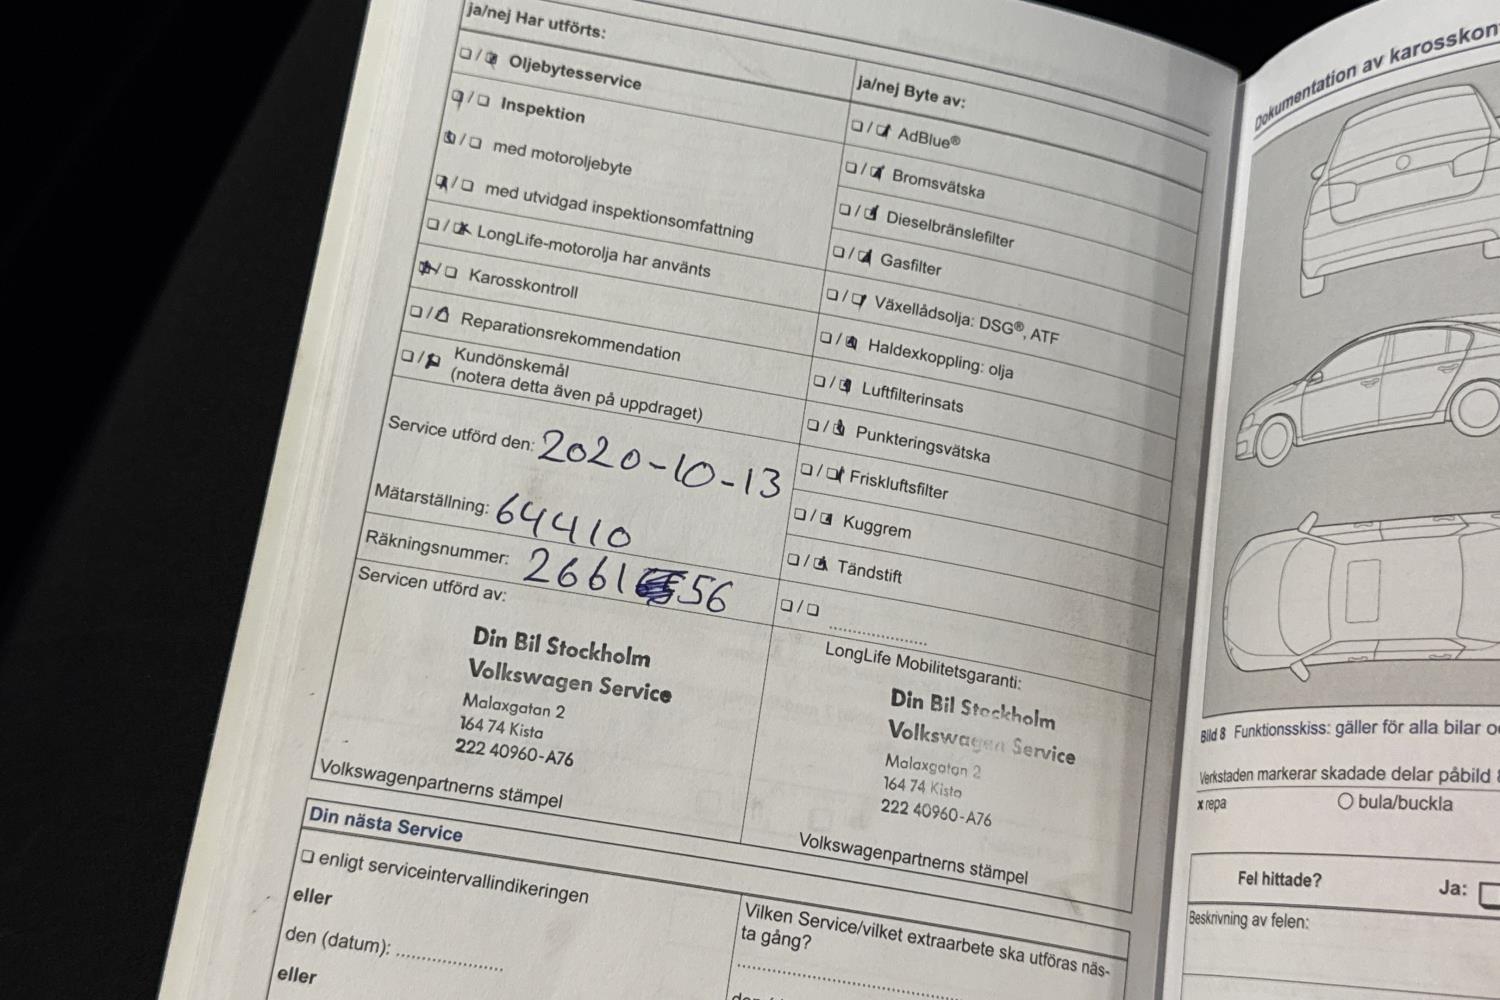 ja/nej Har utförts:
☐/☑ Oljebytesservice
☑/☐ Inspektion
☑/☐ med motoroljebyte
☑/☐ med utvidgad inspektionsomfattning
☐/☑ LongLife-motorolja har använts
☑/☐ Karosskontroll
☐/☑ Reparationsrekommendation
☐/☑ Kundönskemål
(notera detta även på uppdraget)
Service utförd den: 2020-10-13
Mätarställning: 64410
Räkningsnummer: 2661 56
Servicen utförd av:
Din Bil Stockholm
Volkswagen Service
Malaxgatan 2
164 74 Kista
222 40960-A76
Volkswagenpartnerns stämpel
ja/nej Byte av:
☐/☑ AdBlue®
☐/☑ Bromsvätska
☐/☑ Dieselbränslefilter
☐/☑ Gasfilter
☐/☑ Växellådsolja: DSG®, ATF
☐/☑ Haldexkoppling: olja
☐/☑ Luftfilterinsats
☐/☑ Punkteringsvätska
☐/☑ Friskluftsfilter
☐/☑ Kuggrem
☐/☑ Tändstift
☐/☐ ....................
LongLife Mobilitetsgaranti:
Din Bil Stockholm
Volkswagen Service
Malaxgatan 2
164 74 Kista
222 40960-A76
Volkswagenpartnerns stämpel
Din nästa Service
☐ enligt serviceintervallindikeringen
eller
den (datum): ....................
eller
Vilken Service/vilket extraarbete ska utföras näs-
ta gång?
Dokumentation av
Bild 8 Funktionsskiss: gäller för alla bilar
Verkstaden markerar skadade delar på bild
x repa
○ bula/buckla
Fel hittade?
Ja: ☐
Beskrivning av felen: